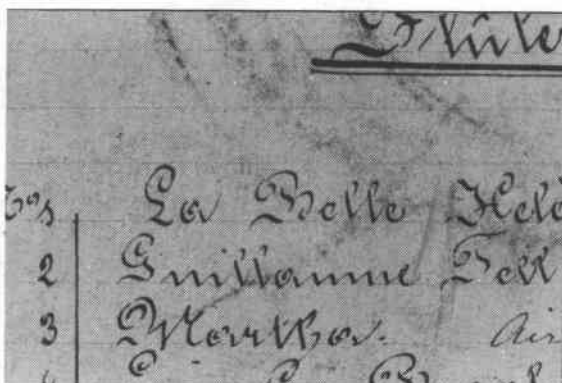 Flûte
Nos La Belle Helè
2 Guillaume Tell
3 Martha. Air